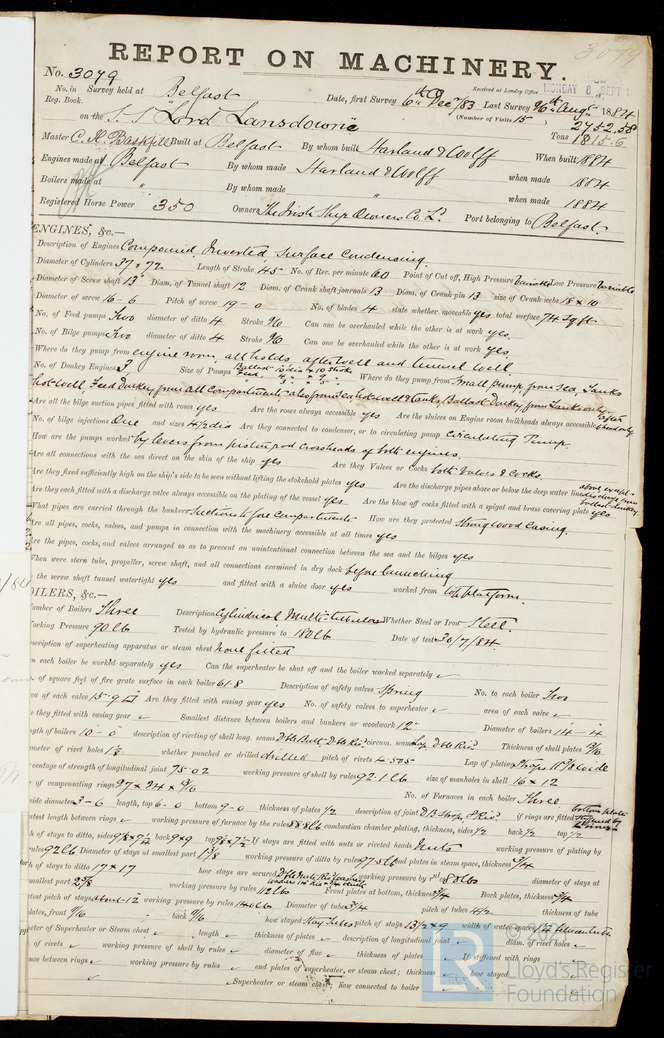 3079
REPORT ON MACHINERY.
No. 3079
Received at London Office MONDAY 8 SEPT
No. in Survey held at Belfast Date, first Survey 6th Decr/83 Last Survey 26th Augt 1884
Reg. Book. (Number of Visits 15
on the S.S "Lord Lansdowne" Tons 2752.38 1815.6
Master C. H. Baskfill Built at Belfast By whom built Harland & Wolff When built 1884
Engines made at Belfast By whom made Harland & Wolff when made 1884
Boilers made at " By whom made " when made 1884
Registered Horse Power 350 Owners The Irish Ship Owners Co Ld. Port belonging to Belfast
ENGINES, &c.—
Description of Engines Compound, Inverted, Surface Condensing.
Diameter of Cylinders 37 x 72 Length of Stroke 45" No. of Rev. per minute 60 Point of Cut off, High Pressure Variable Low Pressure Variable
Diameter of Screw shaft 13" Diam. of Tunnel shaft 12 Diam. of Crank shaft journals 13 Diam. of Crank pin 13 size of Crank webs 18 x 10
Diameter of screw 16-6 Pitch of screw 19-0 No. of blades 4 state whether moveable yes total surface 74 Sq ft
No. of Feed pumps Two diameter of ditto 4 Stroke 26 Can one be overhauled while the other is at work yes.
No. of Bilge pumps Two diameter of ditto 4 Stroke 26 Can one be overhauled while the other is at work yes.
Where do they pump from engine room, all holds, after well and tunnel well.
No. of Donkey Engines 3 Size of Pumps Where do they pump from Small pump from Sea, Tanks
hot well Feed Donkey from all Compartments also from Sea hot well & tanks Ballast Donkey from Tanks only
Are all the bilge suction pipes fitted with roses yes Are the roses always accessible yes Are the sluices on Engine room bulkheads always accessible
No. of bilge injections One and sizes 4½ dia Are they connected to condenser, or to circulating pump Circulating Pump.
How are the pumps worked by levers from piston rod crossheads of both engines.
Are all connections with the sea direct on the skin of the ship yes Are they Valves or Cocks both Valves & Cocks.
Are they fixed sufficiently high on the ship's side to be seen without lifting the stokehold plates yes Are the discharge pipes above or below the deep water line above except discharge from ballast donkey
Are they each fitted with a discharge valve always accessible on the plating of the vessel yes Are the blow off cocks fitted with a spigot and brass covering plate yes
What pipes are carried through the bunkers Suctions to fore compartments How are they protected Strong wood Casing.
Are all pipes, cocks, valves, and pumps in connection with the machinery accessible at all times yes
Are the pipes, cocks, and valves arranged so as to prevent an unintentional connection between the sea and the bilges yes
When were stern tube, propeller, screw shaft, and all connections examined in dry dock before launching
the screw shaft tunnel watertight yes and fitted with a sluice door yes worked from top platform.
OILERS, &c.—
umber of Boilers Three Description Cylindrical, Multitubular Whether Steel or Iron Steel.
orking Pressure 90 lb Tested by hydraulic pressure to 180 lb Date of test 30/7/84.
escription of superheating apparatus or steam chest none fitted
n each boiler be worked separately yes Can the superheater be shut off and the boiler worked separately ✓
. of square feet of fire grate surface in each boiler 61.8 Description of safety valves Spring No. to each boiler Two
ea of each valve 15.9 Are they fitted with easing gear yes No. of safety valves to superheater ✓ area of each valve ✓
e they fitted with easing gear ✓ Smallest distance between boilers and bunkers or woodwork 12" Diameter of boilers 14-4
ngth of boilers 10-0 description of riveting of shell long. seams Dble Butt Dble Rivd circum. seams Lap Dble Rivd Thickness of shell plates
meter of rivet holes 1⅛ whether punched or drilled drilled pitch of rivets 4.505 Lap of plating
centage of strength of longitudinal joint 75.02 working pressure of shell by rules 92.1 lb size of manholes in shell 16 x 12
e of compensating rings No. of Furnaces in each boiler Three
side diameter 3-6 length, top 6-0 bottom 9-0 thickness of plates ½ description of joint if rings are fitted
atest length between rings ✓ working pressure of furnace by the rules 88.8 lb combustion chamber plating, thickness, sides ½ back ½ top ½
h of stays to ditto, sides back 9x9 top If stays are fitted with nuts or riveted heads Nuts working pressure of plating by
rules 92 lb Diameter of stays at smallest part 1⅜ working pressure of ditto by rules end plates in steam space, thickness ¾
h of stays to ditto 17 x 17 how stays are secured working pressure by rules diameter of stays at
smallest part 2⅜ working pressure by rules 112 lb Front plates at bottom, thickness ¾ Back plates, thickness ¾
atest pitch of stays about 12 working pressure by rules Diameter of tubes 3¼ pitch of tubes 4½ thickness of tube
plates, front back how stayed Stay Tubes pitch of stays 13½ x 9 width of water spaces
meter of Superheater or Steam chest ✓ length ✓ thickness of plates ✓ description of longitudinal joint ✓ diam. of rivet holes ✓
of rivets ✓ working pressure of shell by rules ✓ diameter of flue ✓ thickness of plates ✓ If stiffened with rings
nce between rings ✓ working pressure by rules ✓ end plates of superheater, or steam chest; thickness ✓ how stayed
✓ Superheater or steam chest; how connected to boiler ✓
© 2021
LR
Lloyd's Register
Foundation